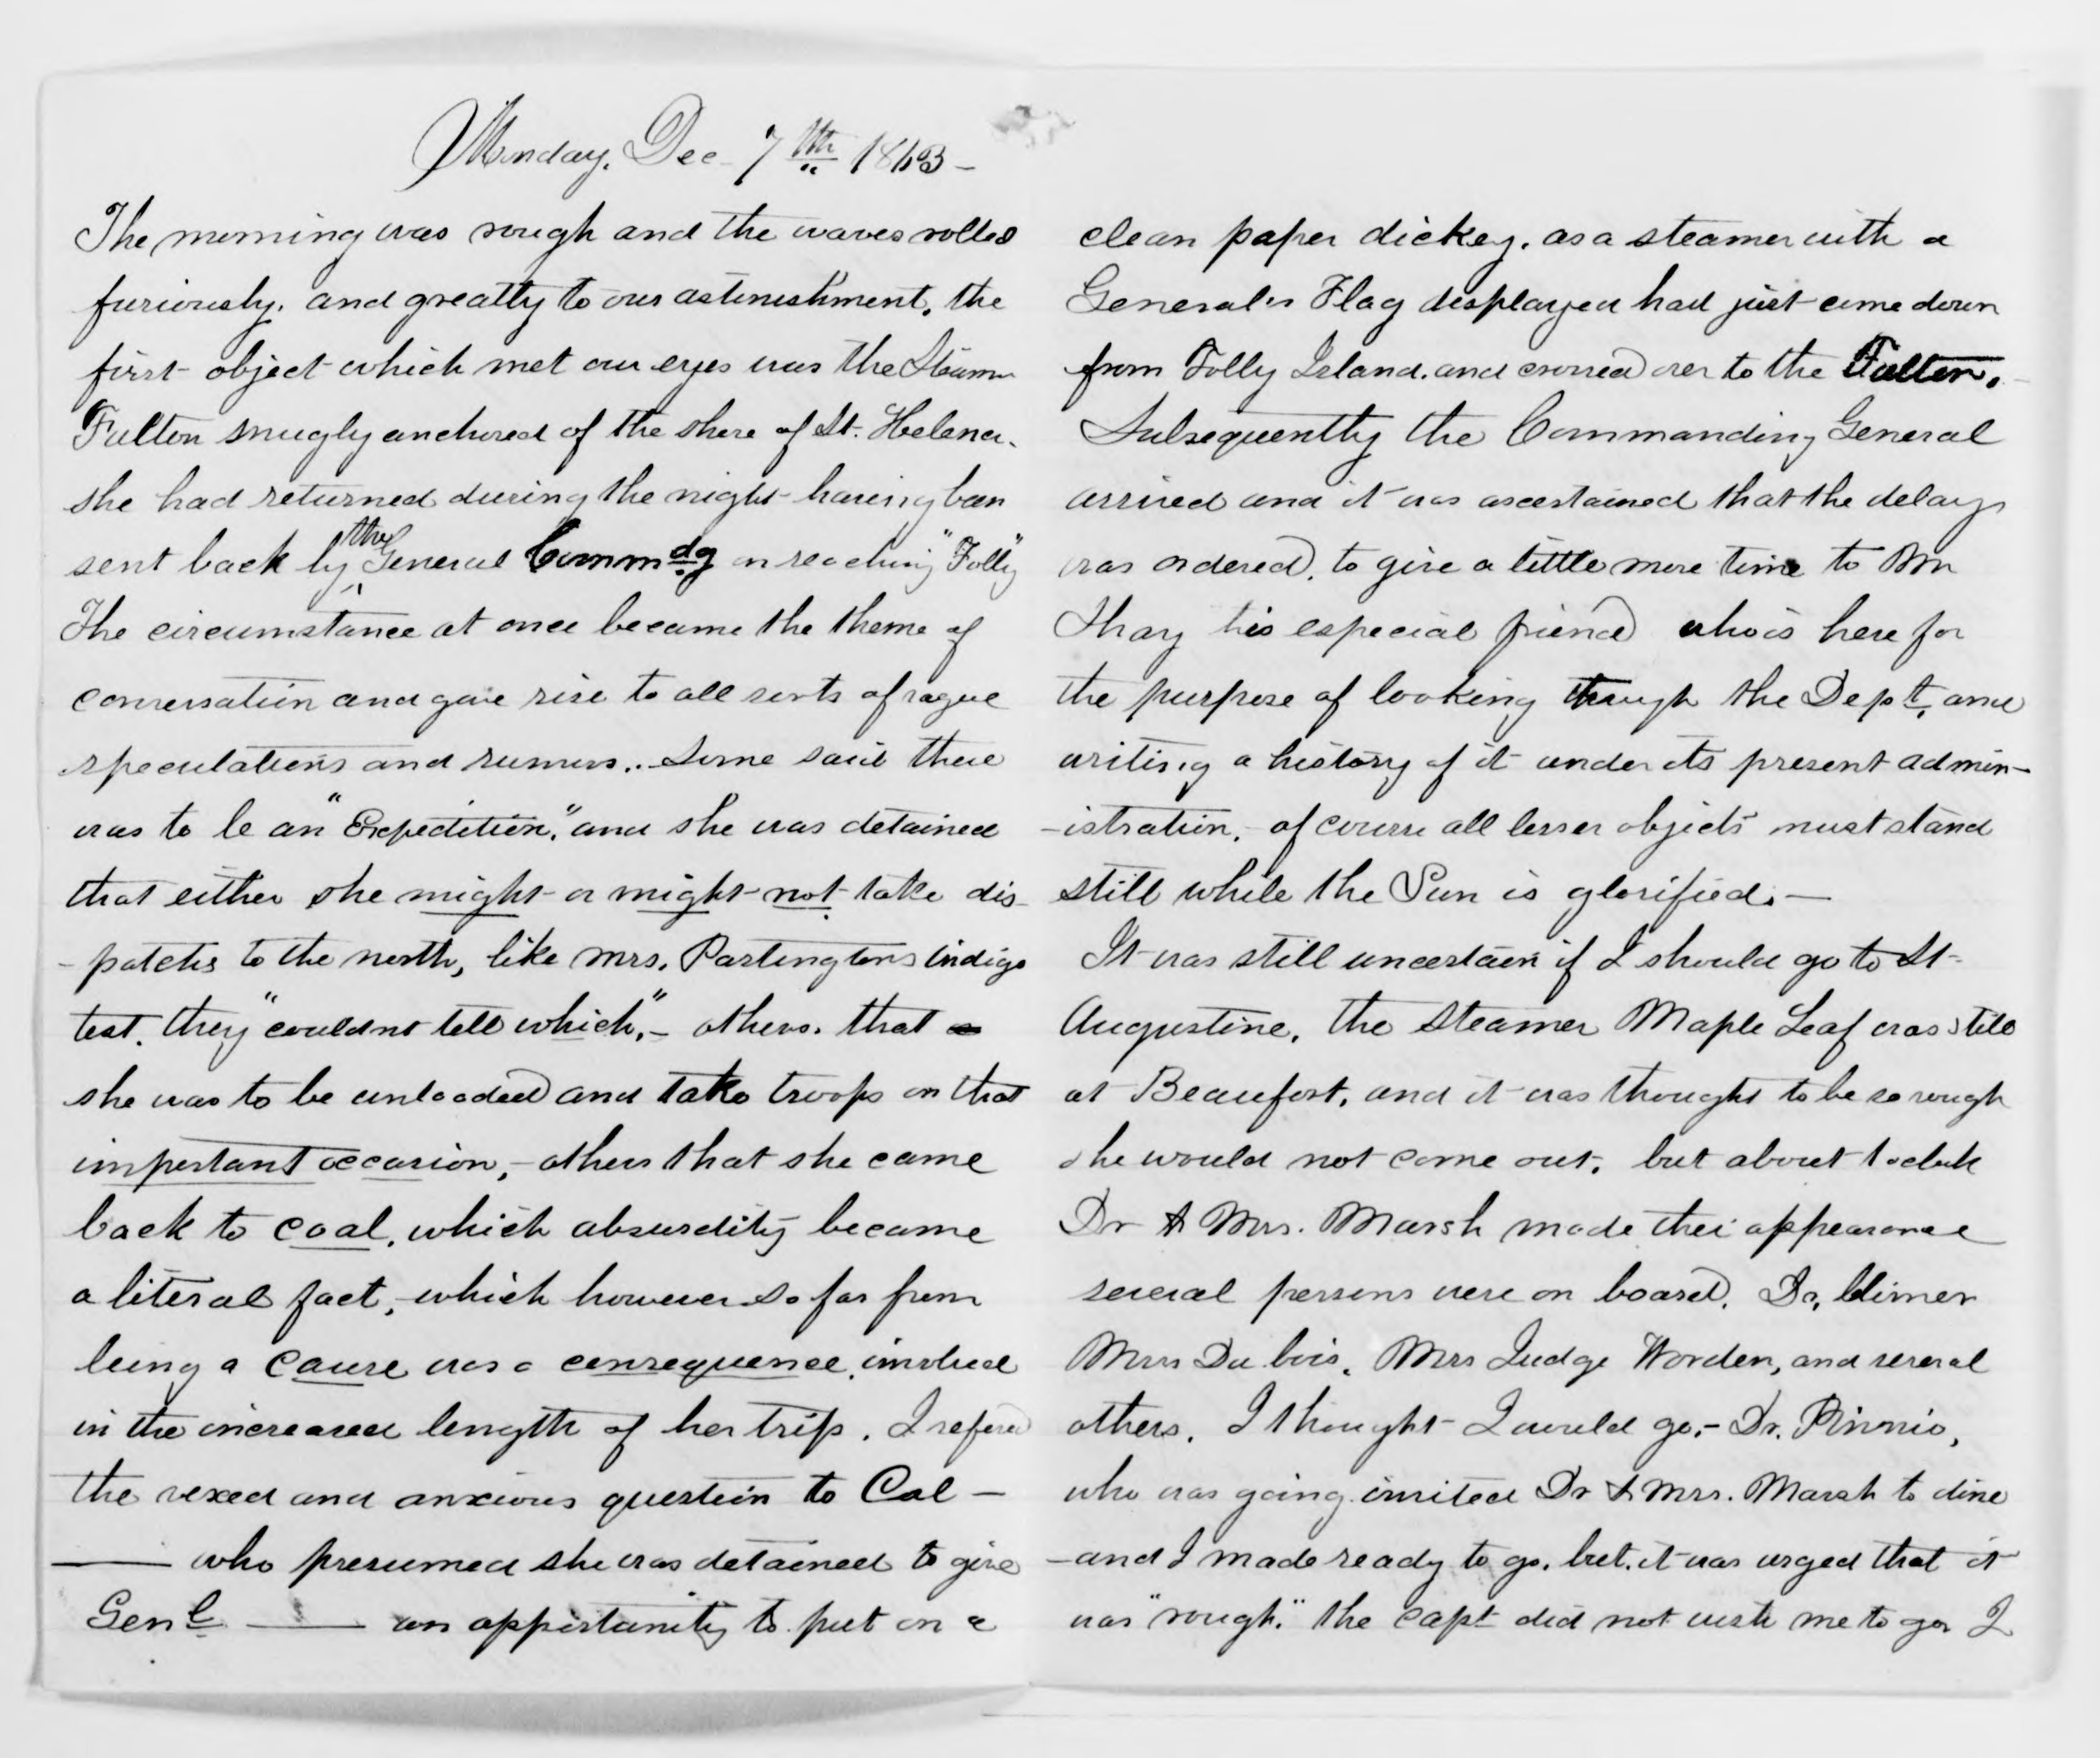 Monday, Dec 7th 1863 -
The morning was rough and the waves rolled
furiously. and greatly to our astonishment, the
first object which met our eyes was the Steamer
Fulton snugly anchored of the shore of St. Helena.
she had returned during the night having been
sent back by the General Commdg on reaching "Folly"
The circumstance at once became the theme of
conversation and gave rise to all sorts of vague
speculations and rumors.. Some said there
was to be an "Expedition," and she was detained
that either she might or might not take dis-
-patches to the north, like Mrs. Partingtons indigo
test. they "couldnt tell which", - others. that
she was to be unloaded and take troops on that
important occasion, - others that she came
back to coal, which absurdity became
a literal fact, which however so far from
being a cause was a consequence, involved
in the increased length of her trip. I refered
the vexed and anxious question to Col -
—— who presumed she was detained to give
Genl —— an oppertunity to put on a
clean paper dickey. as a steamer with a
General's Flag displayed had just come down
from Folly Island. and crossed over to the Fulton.
Subsequently the Commanding General
arrived and it was ascertained that the delay
was ordered, to give a little more time to Mr
Shay his especial friend who is here for
the purpose of looking through the Dept. and
writing a history of it under its present admin-
-istration, - of course all lesser objects must stand
still while the Sun is glorified. —
It was still uncertain if I should go to St-
Augustine, the steamer Maple Leaf was still
at Beaufort, and it was thought to be so rough
she would not come out, but about 1 oclock
Dr & Mrs. Marsh made their appearance
several persons were on board, Dr.
Mrs Du bois, Mrs Judge Worden, and several
others. I thought I would go, - Dr.
who was going invited Dr & Mrs. Marsh to dine
- and I made ready to go. but it was urged that it
was "rough." the Capt did not wish me to go I